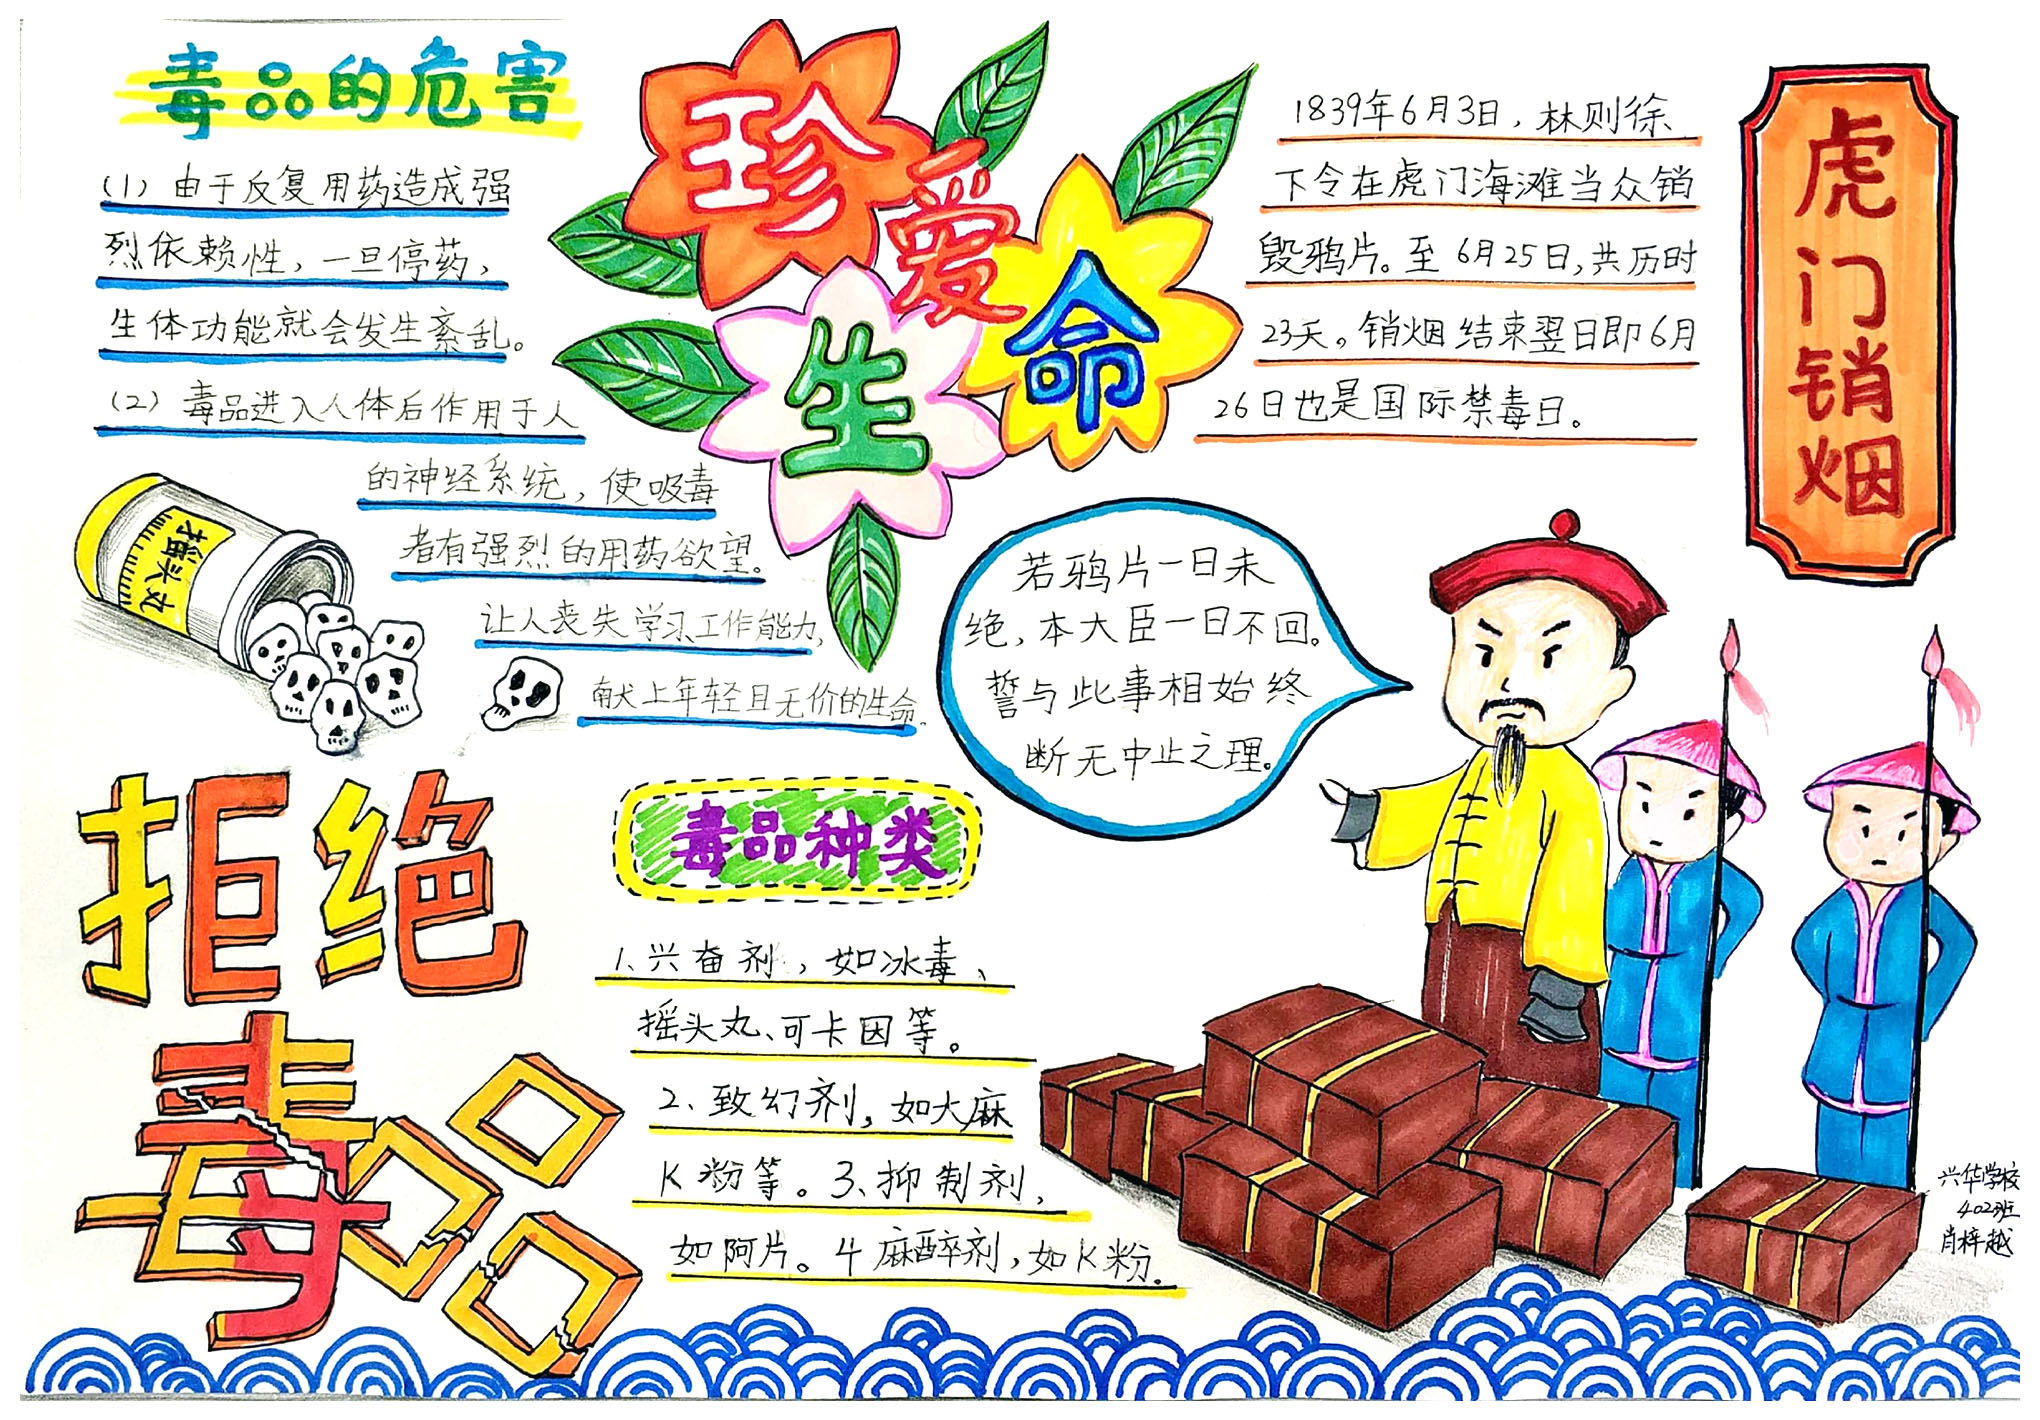 毒品的危害
(1) 由于反复用药造成强
烈依赖性，一旦停药，
生体功能就会发生紊乱。
(2) 毒品进入人体后作用于人
的神经系统，使吸毒
者有强烈的用药欲望。
让人丧失学习工作能力，
献上年轻且无价的生命。
摇头丸
珍爱
生命
1839年6月3日，林则徐
下令在虎门海滩当众销
毁鸦片。至6月25日，共历时
23天。销烟结束翌日即6月
26日也是国际禁毒日。
虎门销烟
若鸦片一日未
绝，本大臣一日不回。
誓与此事相始终
断无中止之理。
拒绝
毒品
毒品种类
1、兴奋剂，如冰毒、
摇头丸、可卡因等。
2、致幻剂，如大麻
K粉等。3、抑制剂，
如阿片。4麻醉剂，如K粉。
兴华学校
402班
肖梓越